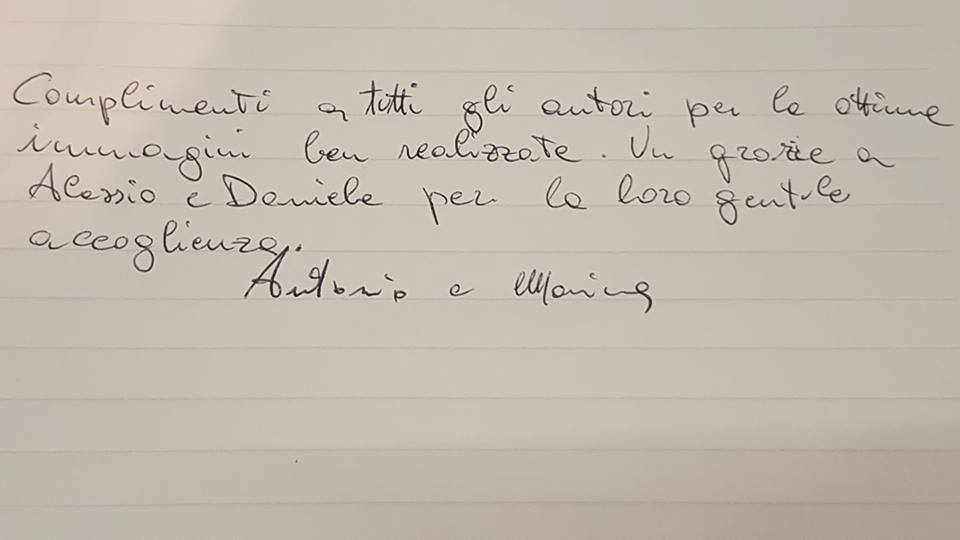 Complimenti a tutti gli autori per le ottime
immagini ben realizzate. Un grazie a
Alessio e Daniele per la loro gentile
accoglienza.
Antonio e Marina